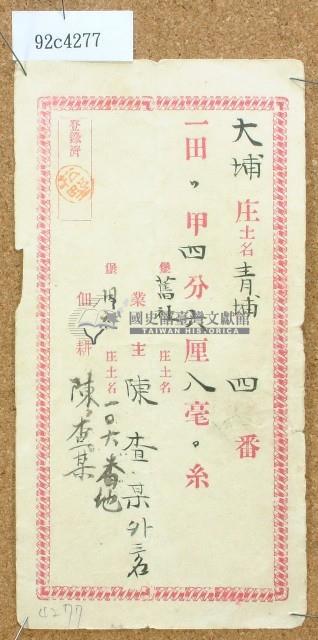 92c4277
大埔庄土名青埔四番
一田 甲四分 厘八毫 糸
堡舊 庄土名
業主陳查某外
堡 庄土名一〇六番地
佃耕 陳查某
登錄濟
國史館臺灣文獻館
TAIWAN HISTORICA
4277